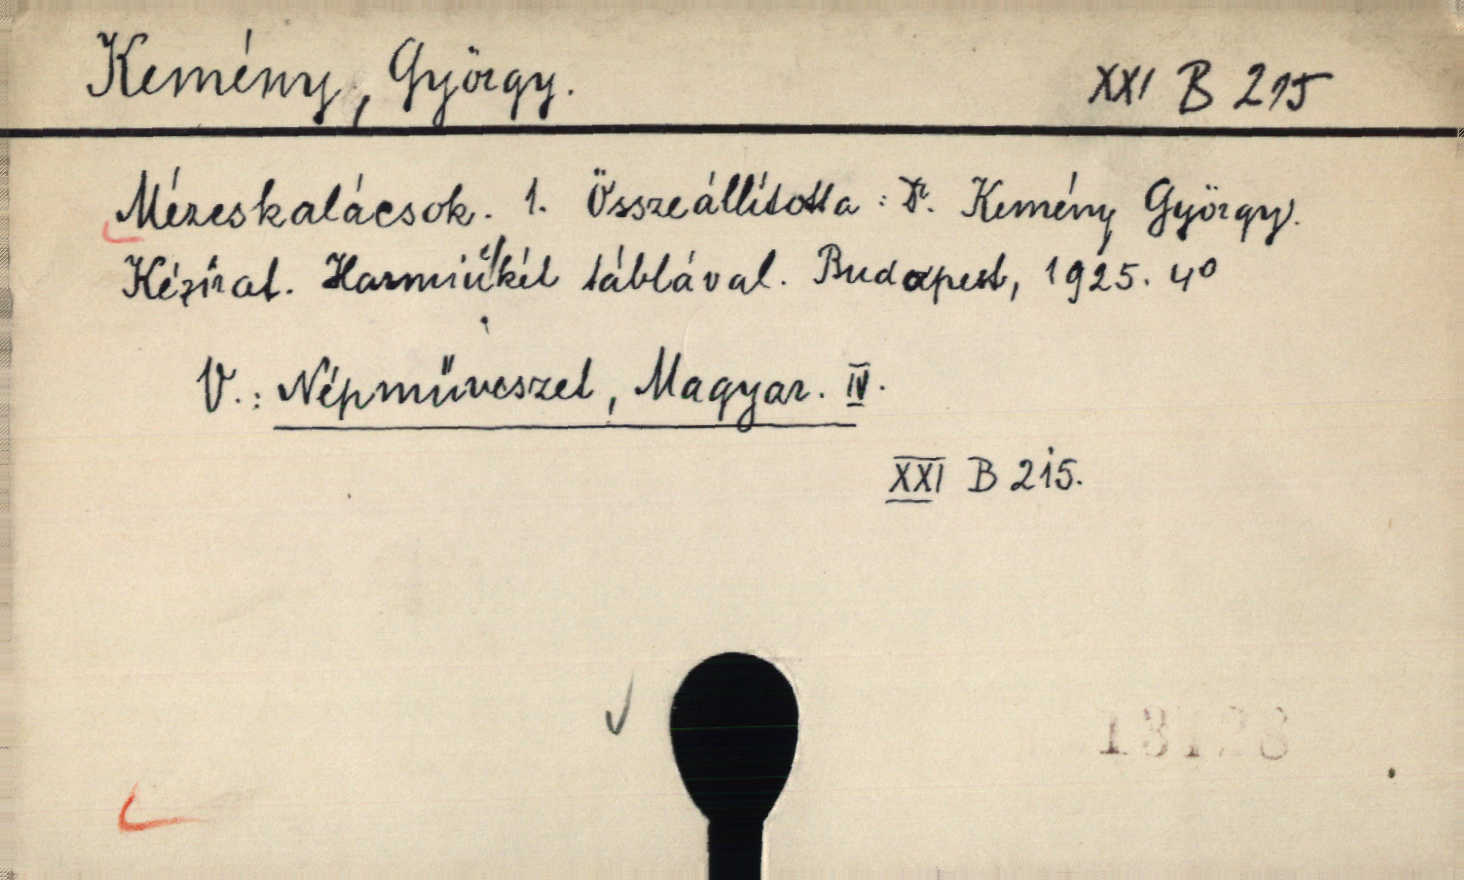 Kemény, György. XXI B 215
Mézeskalácsok. 1. Összeállította: Dr. Kemény György.
Kézirat. Harminckét táblával. Budapest, 1925. 4°
V.: Népművészet, Magyar. IV.
XXI B 215.